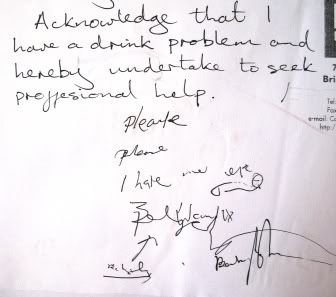 Acknowledge that I
have a drink problem and
hereby undertake to seek
proffesional help.
please
please
I hate me
7
Bri
Tel:
Fax
e-mail: Co
http:/